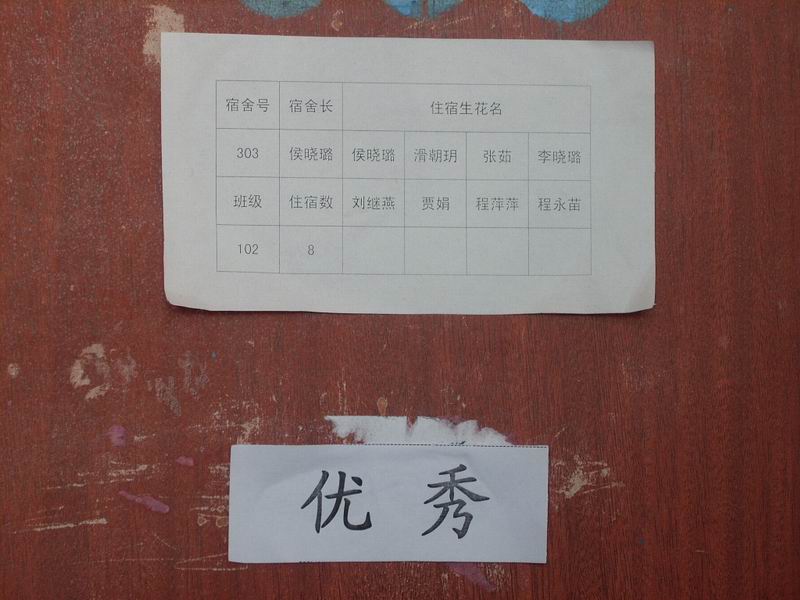 宿舍号 宿舍长 住宿生花名
303 侯晓璐 侯晓璐 滑朝玥 张茹 李晓璐
班级 住宿数 刘继燕 贾娟 程萍萍 程永苗
102 8
优秀